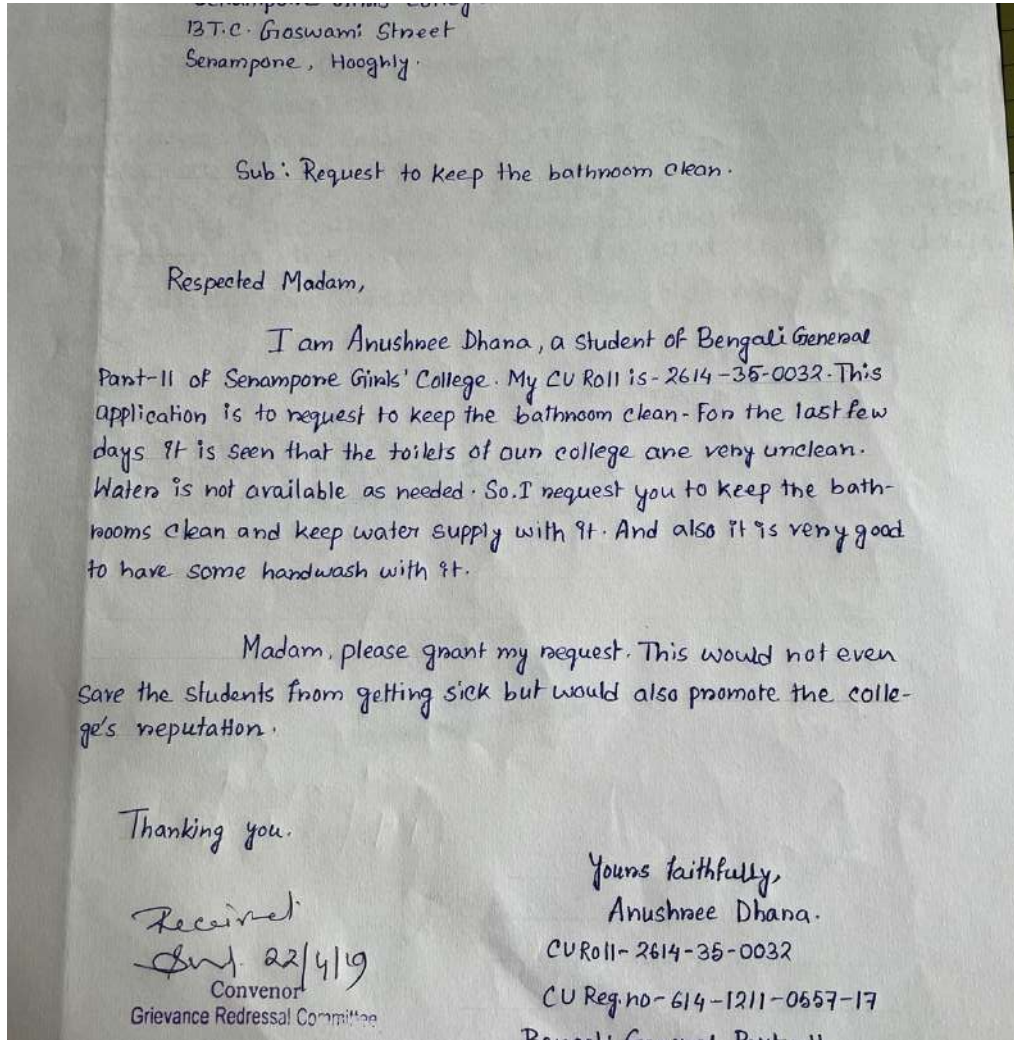 Girls' Colleg
13 T.C. Goswami Street
Serampore, Hooghly.
Sub: Request to keep the bathroom clean.
Respected Madam,
I am Anushree Dhara, a student of Bengali General
Part-II of Serampore Girls' College. My CU Roll is - 2614-35-0032. This
application is to request to keep the bathroom clean- For the last few
days it is seen that the toilets of our college are very unclean.
Water is not available as needed. So. I request you to keep the bath-
rooms clean and keep water supply with it. And also it is very good
to have some handwash with it.
Madam, please grant my request. This would not even
save the students from getting sick but would also promote the colle-
ge's reputation.
Thanking you.
Yours faithfully,
Anushree Dhara.
CU Roll- 2614-35-0032
CU Reg.no- 614-1211-0557-17
Received
22/4/19
Convenor
Grievance Redressal Committee